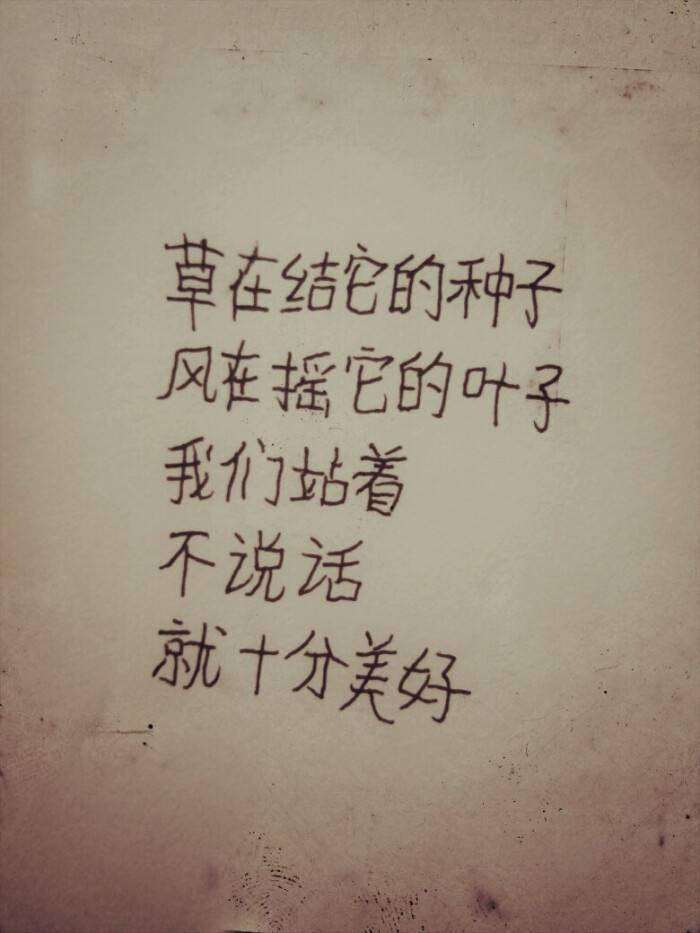 草在结它的种子
风在摇它的叶子
我们站着
不说话
就十分美好